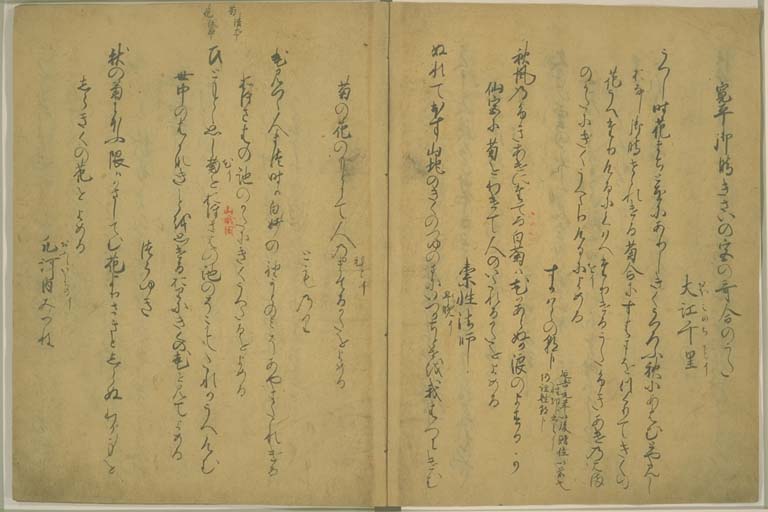 寛平御時きさいの宮の哥合のうた
大江千里
うへし時花まちとをにありしきくうつろふ秋にあはむとやみし
おなし御時せられける菊合にすはまをつくりてきくの
花うへたりけるにくはへたりけるうたふきあけのはま
のかたにきくうへたりけるによめる
すかはらの朝臣
秋風のふきあけにたてる白菊は花かあらぬか浪のよするか
仙宮に菊をわけて人のいたれるかたをよめる
素性法師
ぬれてほす山地のきくのつゆのまにいつかちとせを我はへにけむ
菊の花のもとにて人の人まてるかたをよめる
とものり
花見つゝ人まつ時は白妙の袖かとのみそあやまたれける
おほさはの池のかたにきくうへたるをよめる
ひともとゝ思し菊をおほさはの池のそこにもたれかうへけむ
世中のはかなきことを思けるおりにきくの花を見てよめる
つらゆき
秋の菊にほふ限はかさしてむ花よりさきとしらぬわか身を
しらきくの花をよめる
凡河内みつね